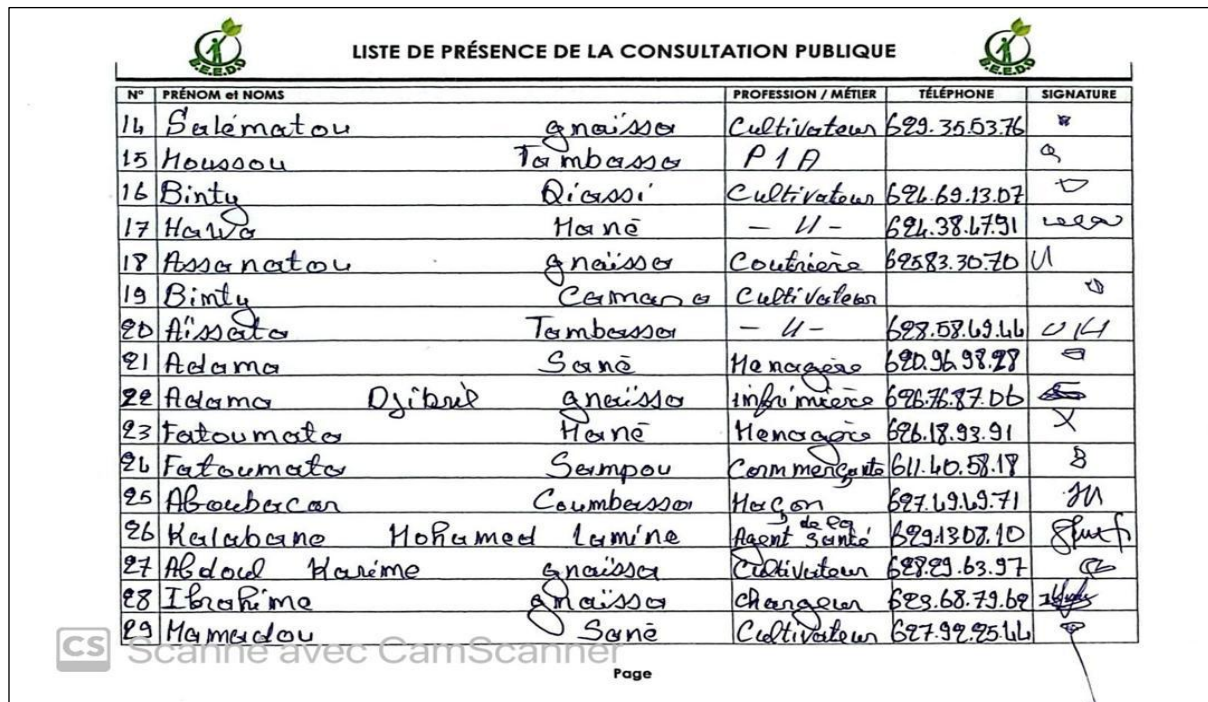 LISTE DE PRÉSENCE DE LA CONSULTATION PUBLIQUE
N° PRÉNOM et NOMS PROFESSION / MÉTIER TÉLÉPHONE SIGNATURE
14 Salématou gnaïssa Cultivateur 629.35.53.76
15 Moussou Tambassa P1A
16 Binty Qiassi Cultivateur 624.69.13.07
17 Hawa Mané - 11 - 624.38.47.91
18 Assanatou gnaïssa Coutrière 62583.30.70
19 Binty Camara Cultivateur
20 Aïssata Tambassa - 11 - 628.58.49.44
21 Adama Sané Menagère 620.96.98.28
22 Adama Djibril gnaïssa infrimière 626.76.87.06
23 Fatoumata Mané Menagère 626.18.93.91
24 Fatoumata Sampou Commerçante 611.40.58.18
25 Aboubacar Coumbassa Maçon 627.49.49.71
26 Kalabane Mohamed Lamine Agent de la Santé 629.1308.10
27 Abdoul Karime gnaïssa Cultivateur 628.29.63.97
28 Ibrahime gnaïssa Changeur 623.68.79.62
29 Mamadou Sané Cultivateur 627.92.25.44
CS Scanné avec CamScanner
Page